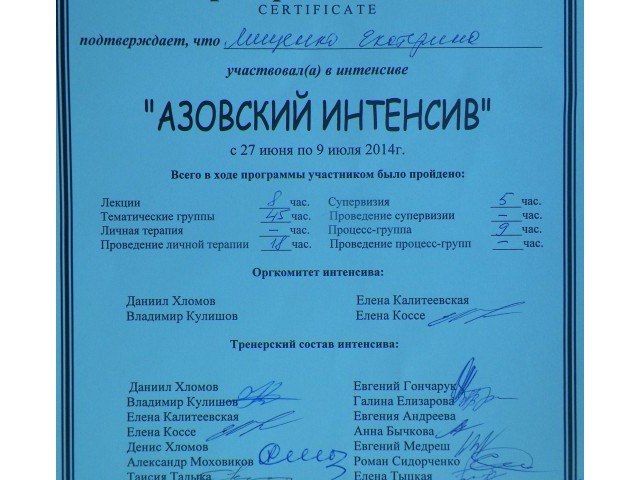 CERTIFICATE
подтверждает, что Мищенко Екатерина
участвовал(а) в интенсиве
"АЗОВСКИЙ ИНТЕНСИВ"
с 27 июня по 9 июля 2014г.
Всего в ходе программы участником было пройдено:
Лекции 8 час. Супервизия 5 час.
Тематические группы 45 час. Проведение супервизии – час.
Личная терапия – час. Процесс-группа 9 час.
Проведение личной терапии 18 час. Проведение процесс-групп – час.
Оргкомитет интенсива:
Даниил Хломов Елена Калитеевская
Владимир Кулишов Елена Коссе
Тренерский состав интенсива:
Даниил Хломов Евгений Гончарук
Владимир Кулишов Галина Елизарова
Елена Калитеевская Евгения Андреева
Елена Коссе Анна Бычкова
Денис Хломов Евгений Медреш
Александр Моховиков Роман Сидорченко
Таисия Талыка Елена Тыцкая